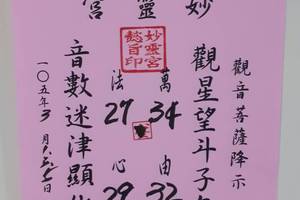 妙靈宮
觀音菩薩降示
觀星望斗子
妙靈宮
懿旨印
萬 34 由 32
法 27 心 29
音數迷津顯
一〇五年3月